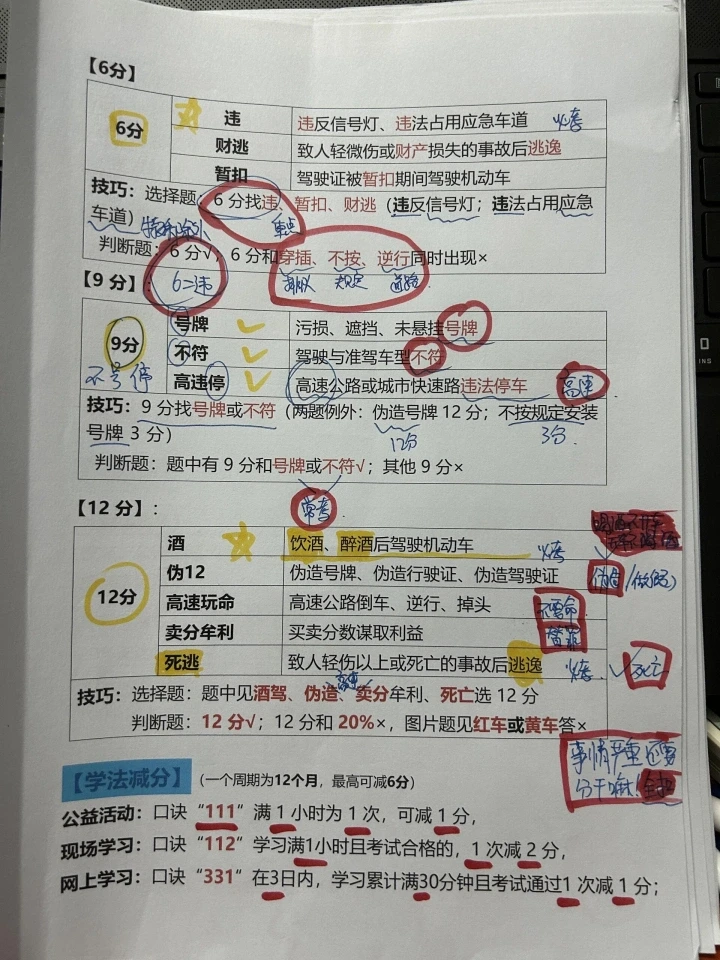 【6分】
6分
违 违反信号灯、违法占用应急车道 必考
财逃 致人轻微伤或财产损失的事故后逃逸
暂扣 驾驶证被暂扣期间驾驶机动车
技巧：选择题：6分找违、暂扣、财逃（违反信号灯；违法占用应急
车道）
重点
判断题：6分√；6分和穿插、不按、逆行同时出现×
6=违 排队 规定 道路
【9分】：
9分
号牌 污损、遮挡、未悬挂号牌
不符 驾驶与准驾车型不符
高速停 高速公路或城市快速路违法停车 高速
不号停
技巧：9分找号牌或不符（两题例外：伪造号牌12分；不按规定安装
号牌3分）
12分 3分
判断题：题中有9分和号牌或不符√；其他9分×
常考
【12分】：
12分
酒 饮酒、醉酒后驾驶机动车 必考
伪12 伪造号牌、伪造行驶证、伪造驾驶证 伪造/做假)
高速玩命 高速公路倒车、逆行、掉头 不要命
卖分牟利 买卖分数谋取利益
死逃 致人轻伤以上或死亡的事故后逃逸 必考 死亡
高速
技巧：选择题：题中见酒驾、伪造、卖分牟利、死亡选12分
判断题：12分√；12分和20%×，图片题见红车或黄车答×
事情严重还要
分干嘛！全扣
【学法减分】（一个周期为12个月，最高可减6分）
公益活动：口诀“111”满1小时为1次，可减1分，
现场学习：口诀“112”学习满1小时且考试合格的，1次减2分，
网上学习：口诀“331”在3日内，学习累计满30分钟且考试通过1次减1分；